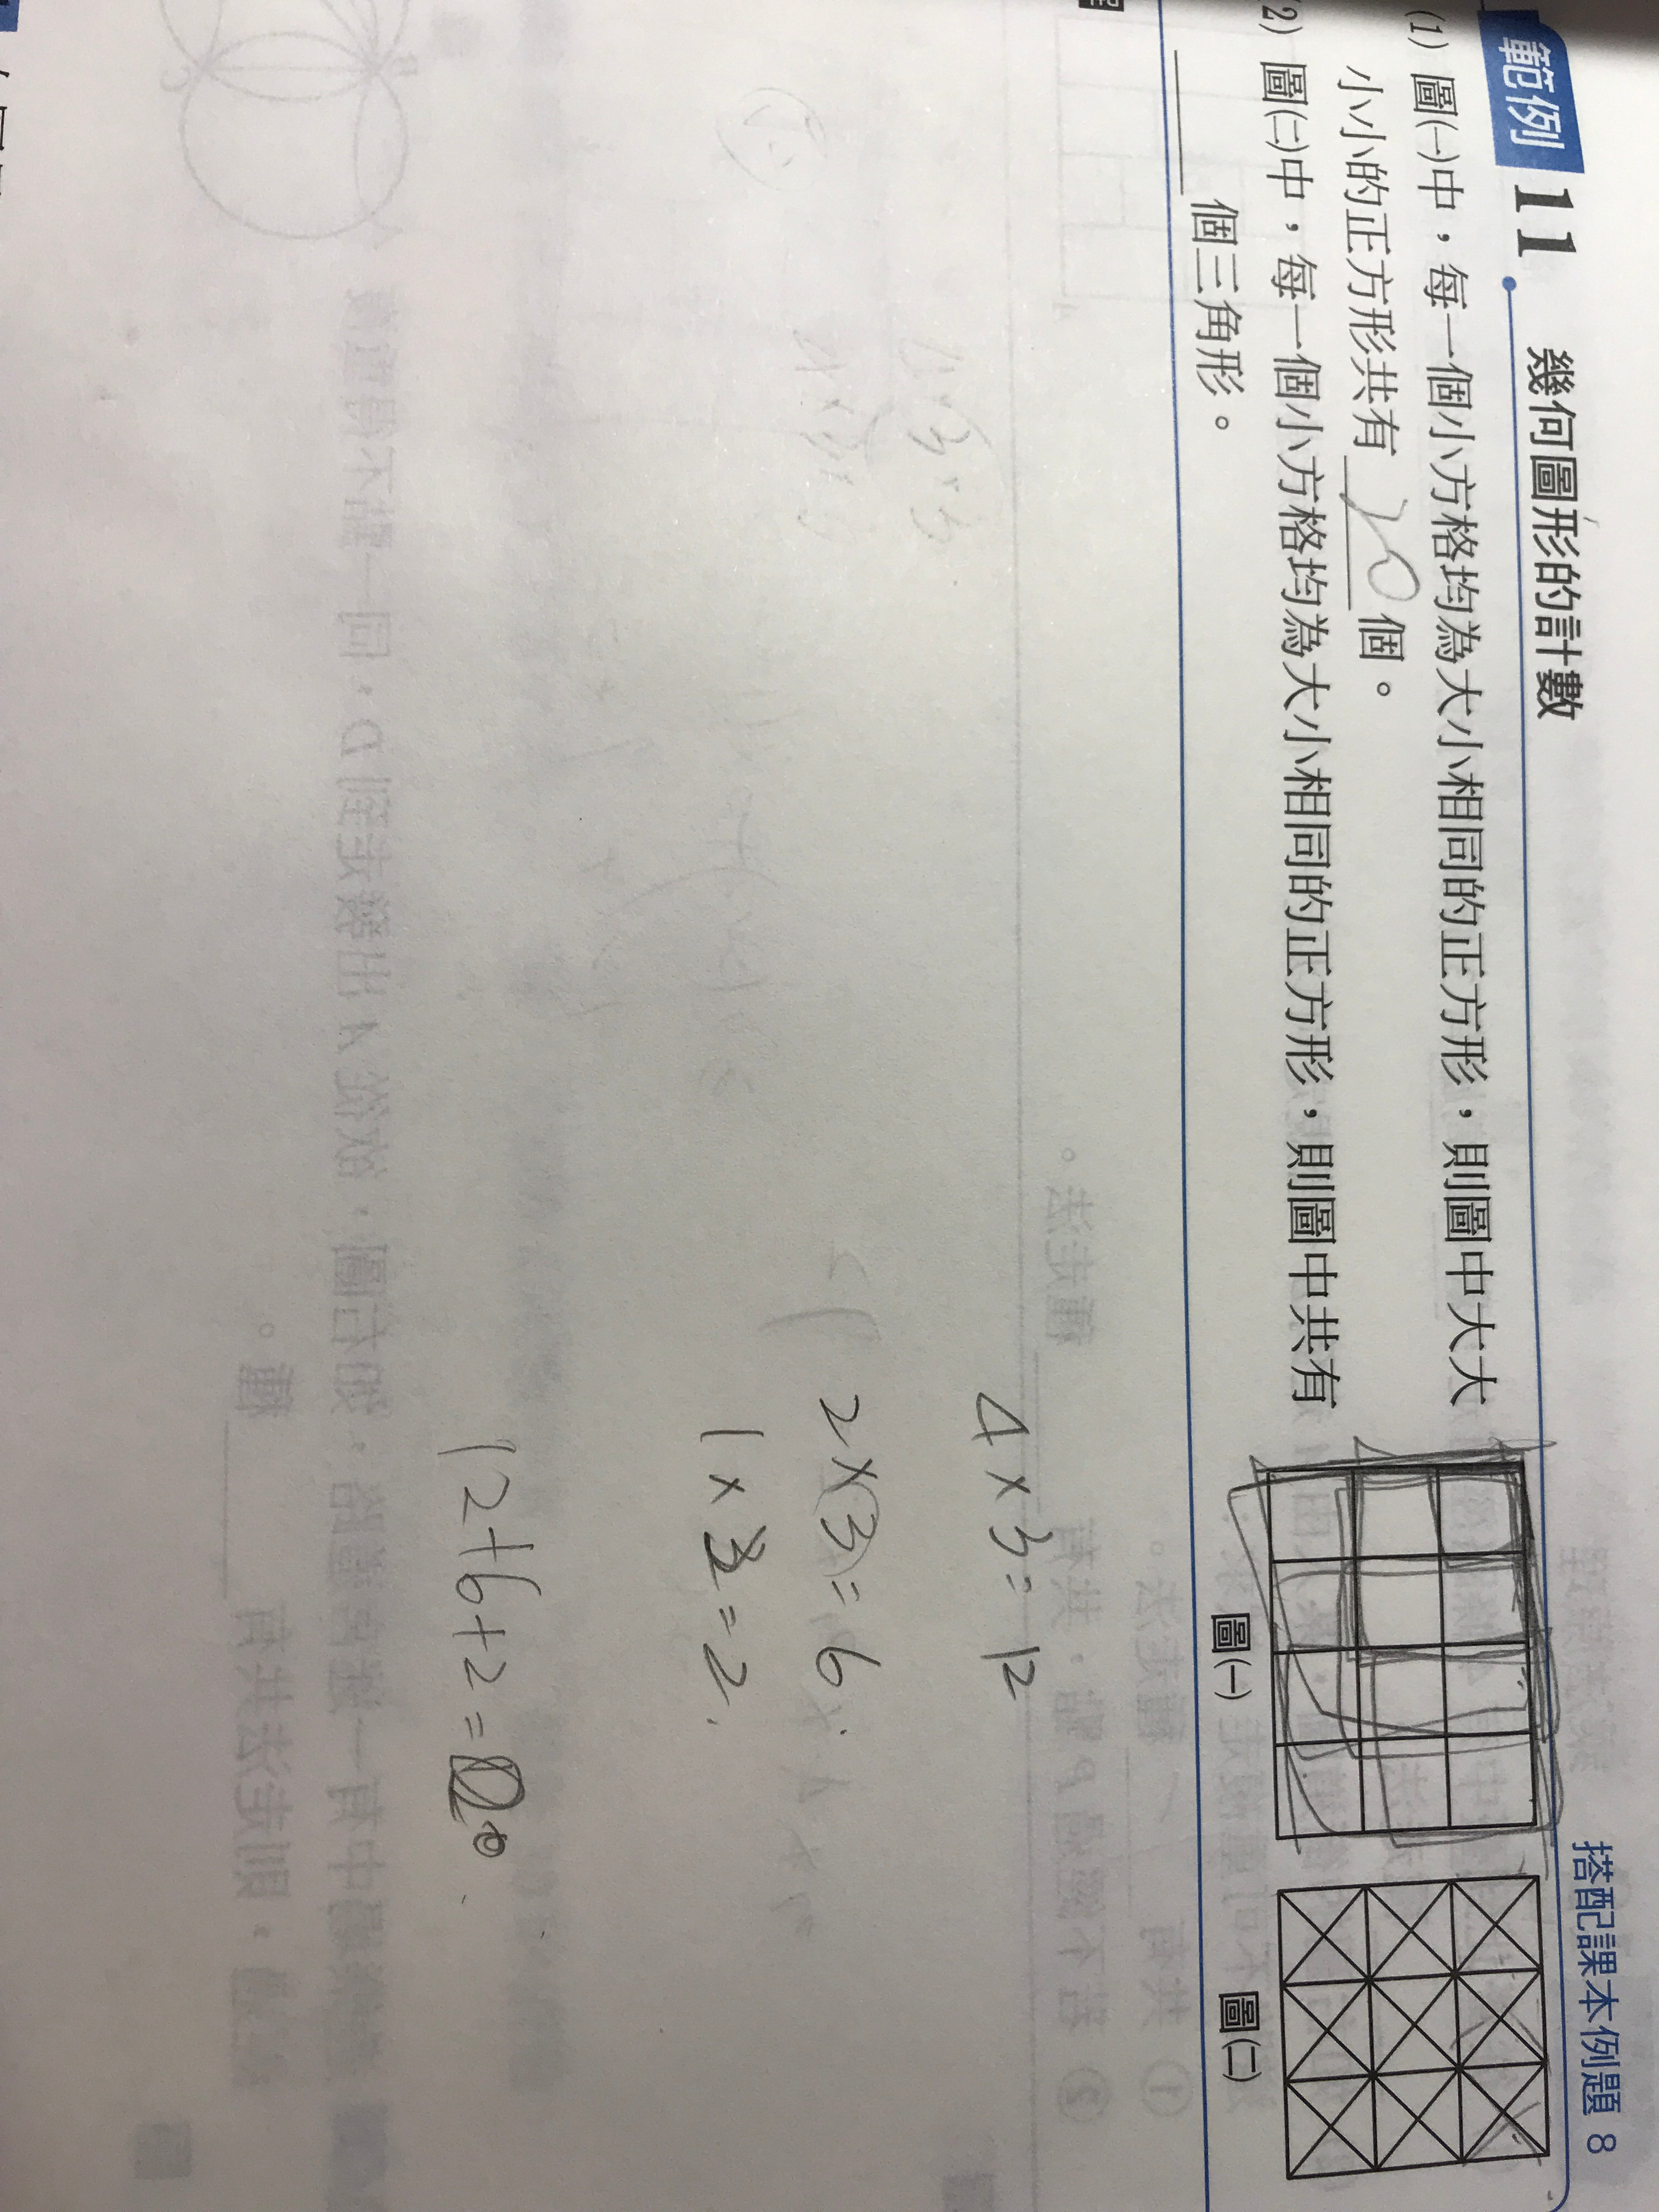 範例 11 幾何圖形的計數
搭配課本例題 8
(1) 圖㈠中，每一個小方格均為大小相同的正方形，則圖中大大
小小的正方形共有 20 個。
(2) 圖㈡中，每一個小方格均為大小相同的正方形，則圖中共有
個三角形。
圖㈠
圖㈡
4×3=12
2×3=6
1×2=2
12+6+2=20